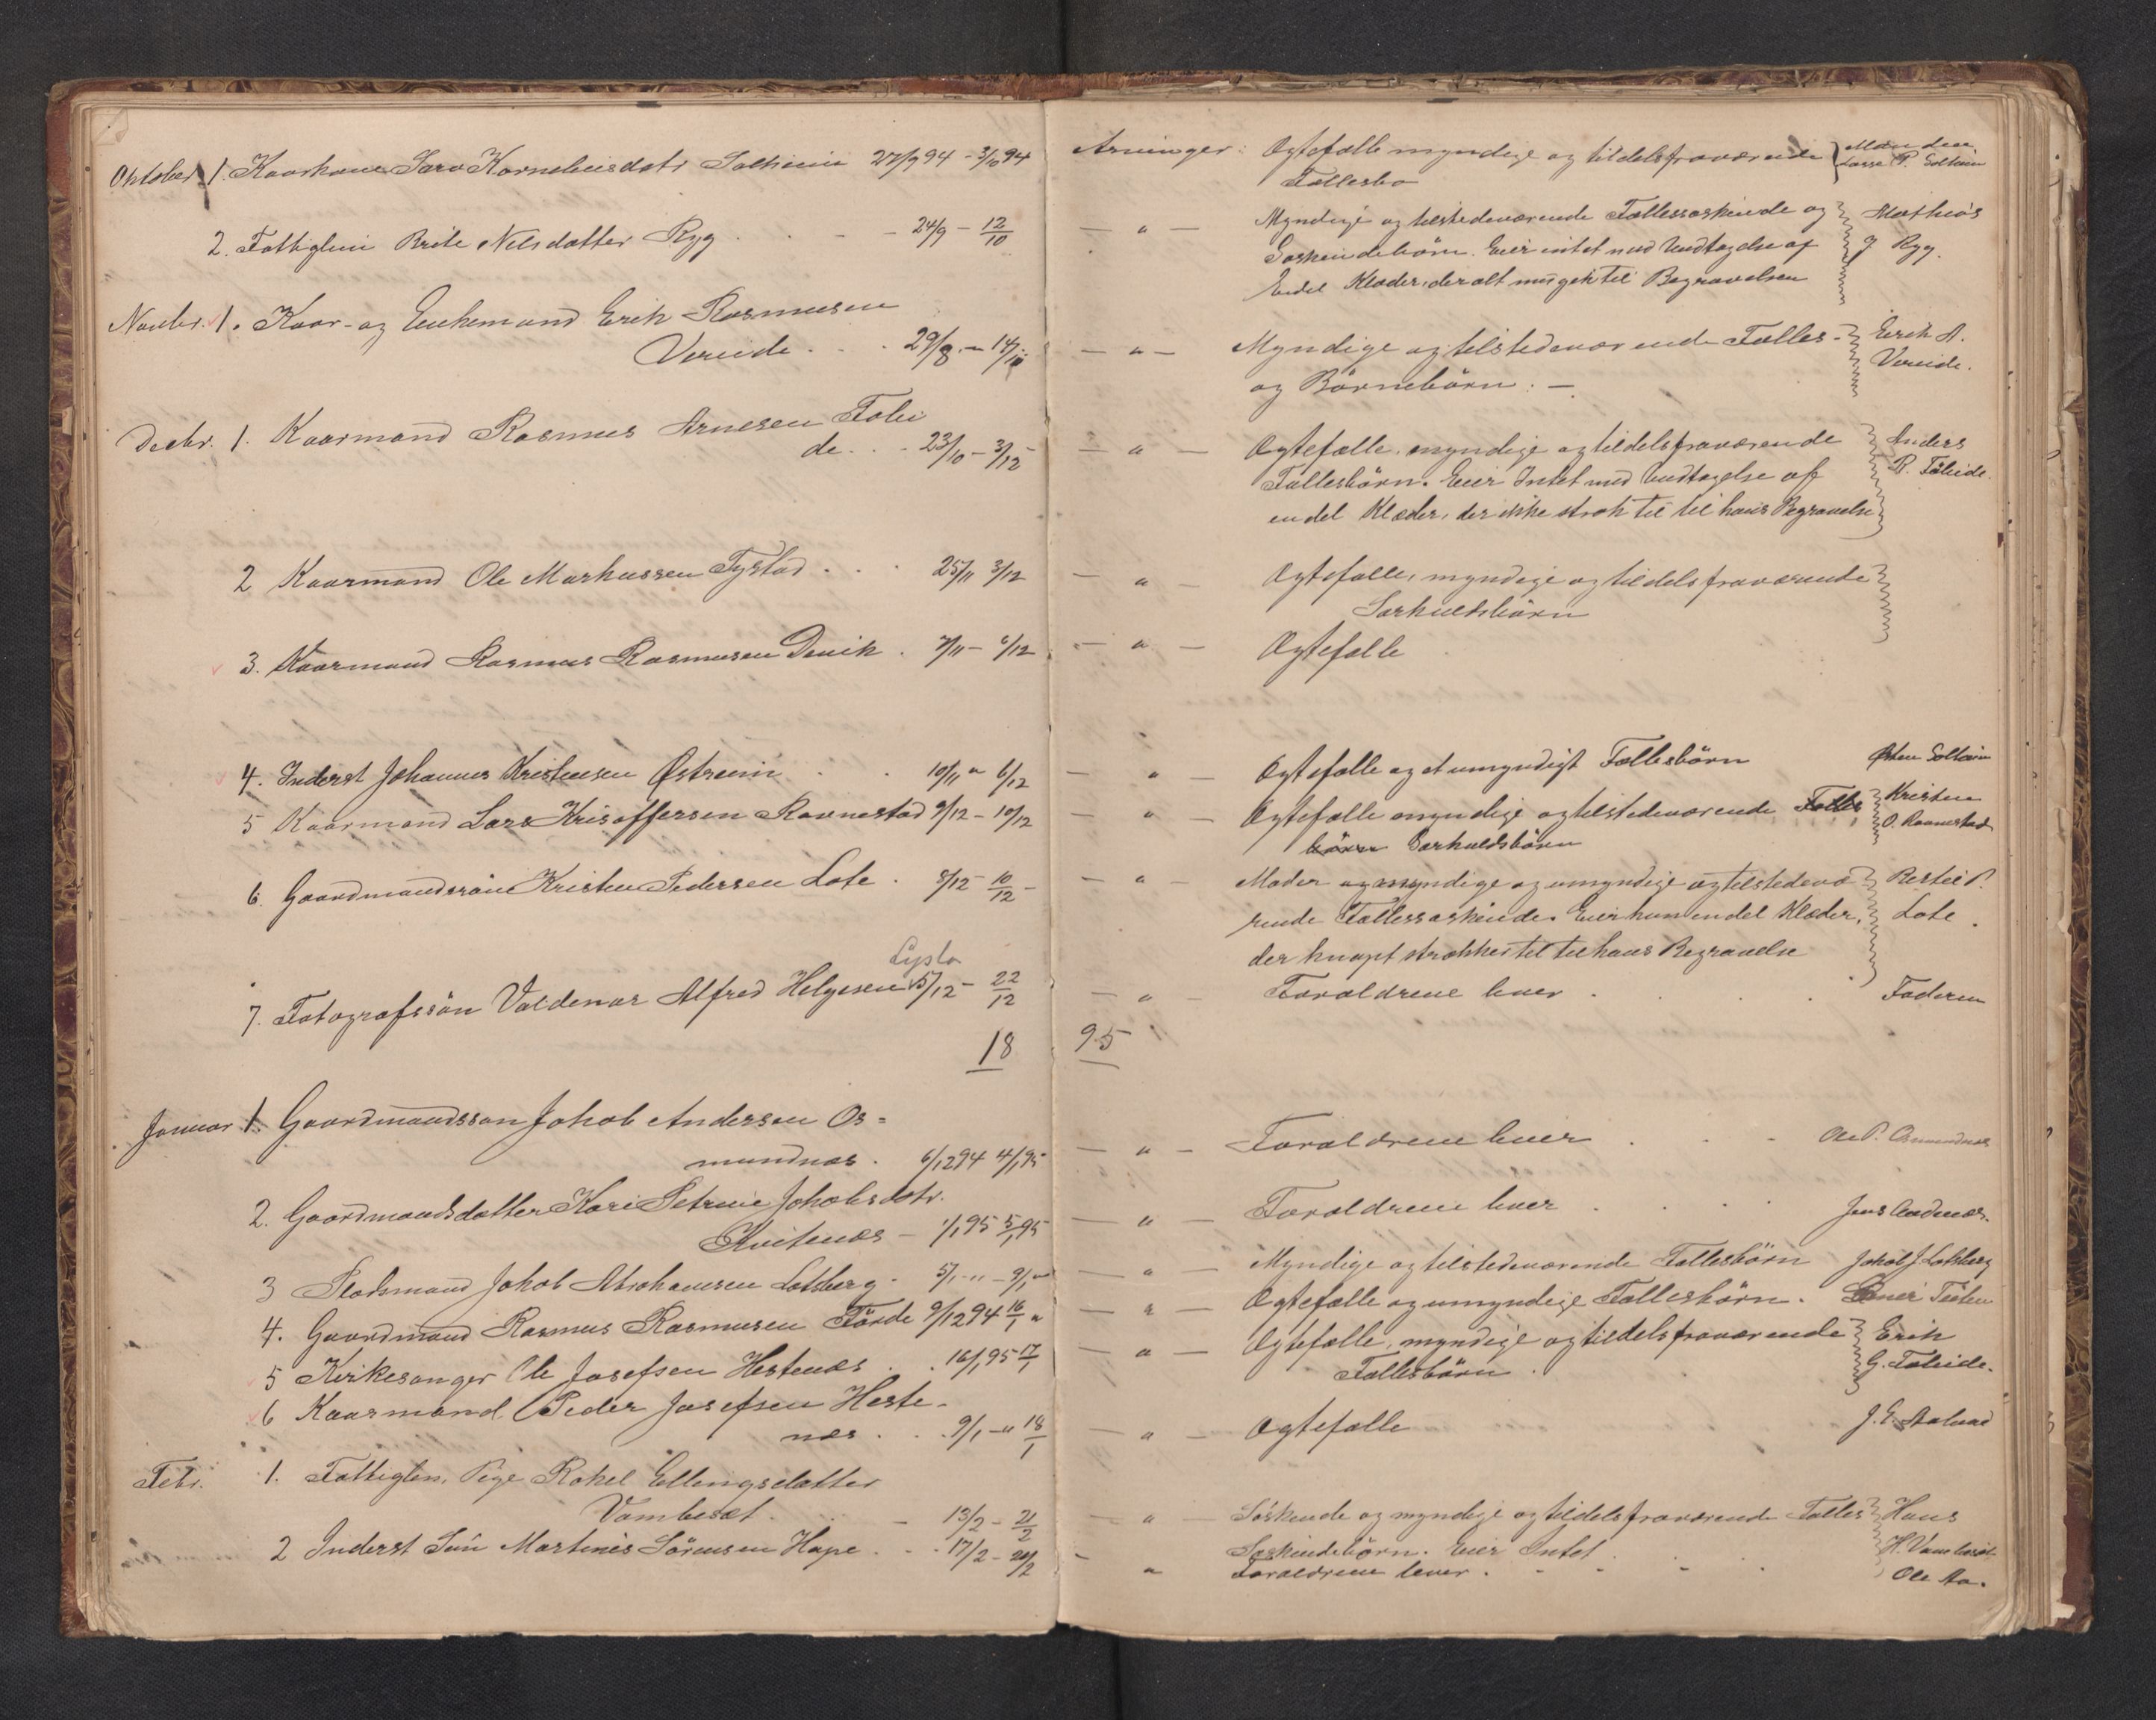 Oktober 1. Kaarkone Sara Kornelisdatr Solheim 27/9 94 - 3/10 94
2. Fattiglem Brite Nilsdatter Ryg . . - - 24/9 - 12/10
Novbr. 1. Kaar- og Enkemand Erik Rasmusen
Vereide . . . 29/8 - 14/10
Decbr. 1. Kaarmand Rasmus Arnesen Föleide
de . . . 23/10 - 3/12
2 Kaarmand Ole Markussen Tystad . . . 25/11 3/12
3. Kaarmand Rasmus Rasmusen Devik . 7/11 - 6/12
4. Inderst Johannes Kristensen Østrem . . 10/11 " 6/12
5 Kaarmand Lars Krisoffersen Ravnestad 9/12 - 10/12
6. Gaardmandssön Kristen Pedersen Lote . 8/12 - 10/12 -
Lysla
7. Fotografssön Valdemar Alfred Helgesen 15/12 - 22/12
18
Januar 1. Gaardmandsson Jakob Andersen Os=
mundnæs . 6/12 94 4/1 95
2. Gaardmandsdatter Kari Petrine Jakobsdtr.
Kvitenæs - 1/1 95 5/1 95
3 Pladsmand Jakob Abrahamsen Lotsberg - 5/1 - " - 9/1 "
4. Gaardmand Rasmus Rasmusen Förde 9/12 94 16/1 "
5 Kirkesanger Ole Josefsen Hestenæs . . 16/1 95 17/1
6 Kaarmand Peder Josefsen Heste-
næs . . . 9/1 - " 18/1
Febr. 1. Fattiglem, Pige Rakel Ellingsdatter
Vambeset . - 13/2 - 21/2
2 Inderst Sön Martines Sörensen Hope . . . 17/2 - 20/2
Arvinger: Ægtefælle myndige og tildels fraværende } Manden
Fællesbo Lasse P. Solheim
— " — Myndige og tilstedeværende Fællessøskende og } Mathias
Søskendebörn. Eier intet med Undtagelse af J Ryg.
Endel Klæder, der alt medgik til Begravelsen
— " — Myndige og tilstedeværende Fælles- } Erik A.
og Börnebörn. — Vereide.
— " — Ægtefælle, myndige og tildels fraværende } Anders
Fællesbörn. Eier Intet med Undtagelse af R. Föleide.
en del Klæder, der ikke strak til til hans Begravelse
— " — Ægtefælle, myndige og tildels fraværende }
Særkuldsbörn
— " — Ægtefælle .
— " — Ægtefælle og et umyndigt Fællesbörn Østen Solheim
— " — Ægtefælle myndige og tilstedeværende Fælles } Kristen
börn Særkuldsbörn O. Ravnestad
— " — Moder og myndige og umyndige og tilstedevæ= } Restel P.
rende Fællessøskende. Eier kun en del Klæder, Lote .
der knapt strækker til til hans Begravelse
— " — Forældrene lever . . . . Faderen
95
— " — Forældrene lever . . - Ole P. Osmundnæs
— " — Forældrene lever . . . Jens Andenæs.
— " — Myndige og tilstedeværende Fællesbörn Jakob J. Lotsberg
— " — Ægtefælle og umyndige Fællesbörn.
— " — Ægtefælle, myndige og tildels fraværende } Erik
Fællesbörn . G. Föleide.
— " — Ægtefælle
— " — Söskende og myndige og tildels fraværende Fælles } Hans
Søskendebörn. Eier Intet . H. Vambeset
- " Forældrene lever . - - - . Ole Aa.